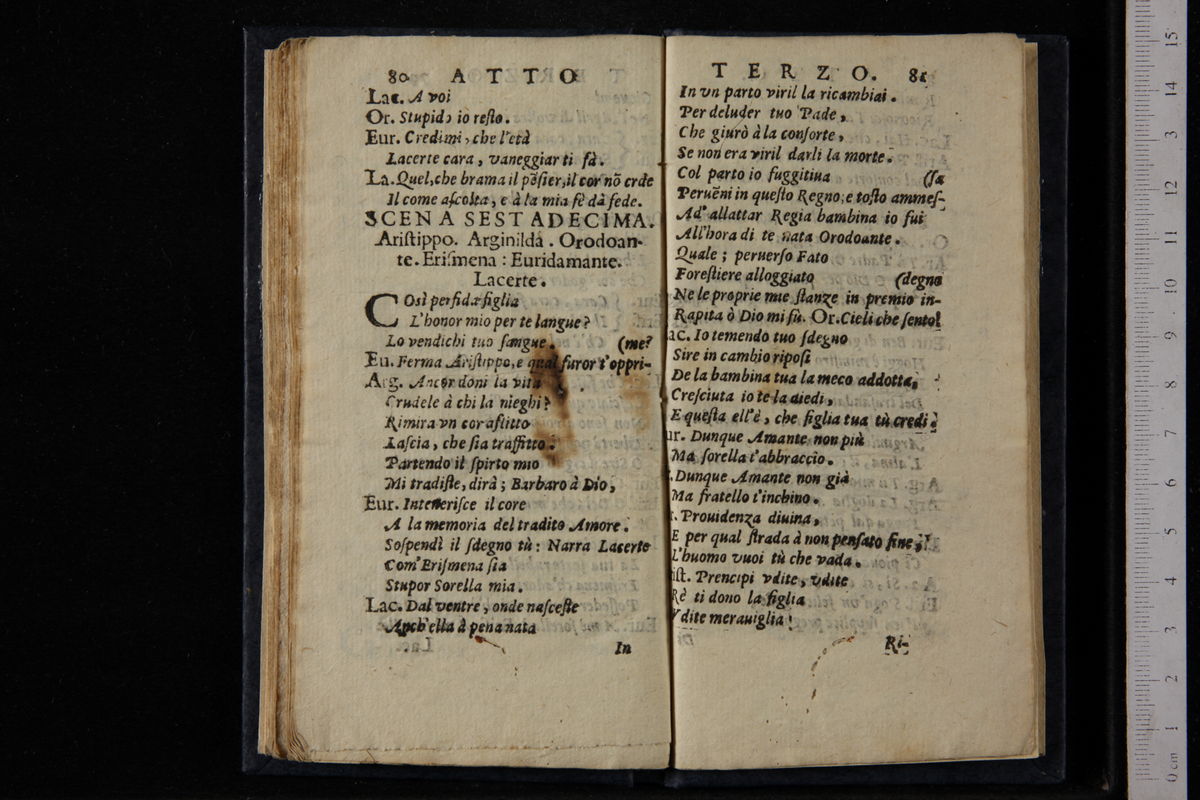 80 ATTO
Lac. A voi
Or. Stupido io resto.
Eur. Credimi, che l'età
Lacerte cara, vaneggiar ti fà.
La. Quel, che brama il pẽsier, il cor nõ crde
Il come ascolta, e à la mia fè dà fede.
SCENA SESTADECIMA.
Aristippo. Arginilda. Orodoan-
te. Erismena: Euridamante.
Lacerte.
COsì perfida figlia
L'honor mio per te langue?
Lo vendichi tuo sangue. (me?
Eu. Ferma Aristippo, e qual furor t'oppri-
Arg. Ancor doni la vita
Crudele à chi la nieghi?
Rimira vn cor aflitto
Lascia, che sia traffitto.
Partendo il spirto mio
Mi tradiste, dirà; Barbaro à Dio,
Eur. Intenerisce il core
A la memoria del tradito Amore.
Sospendi il sdegno tù: Narra Lacerte
Com' Erismena sia
Stupor Sorella mia.
Lac. Dal ventre, onde nasceste
Anch'ella à pena nata
In
TERZO. 81
In vn parto viril la ricambiai.
Per deluder tuo Pade,
Che giurò à la consorte,
Se non era viril darli la morte.
Col parto io fuggitiua (sa
Peruẽni in questo Regno; e tosto ammes-
Ad' allattar Regia bambina io fui
All'hora di te nata Orodoante.
Quale; peruerso Fato
Forestiere alloggiato (degno
Ne le proprie mie stanze in premio in-
Rapita ò Dio mi fù. Or. Cieli che sento!
ac. Io temendo tuo sdegno
Sire in cambio riposi
De la bambina tua la meco addotta,
Cresciuta io te la diedi,
E questa ell'è, che figlia tua tù credi.
ur. Dunque Amante non più
Ma sorella t'abbraccio.
. Dunque Amante non già
Ma fratello t'inchino.
. Prouidenza diuina,
E per qual strada à non pensato fine,
L'huomo vuoi tù che vada.
ist. Prencipi vdite, vdite
Rè ti dono la figlia
Vdite merauiglia!
Ri-